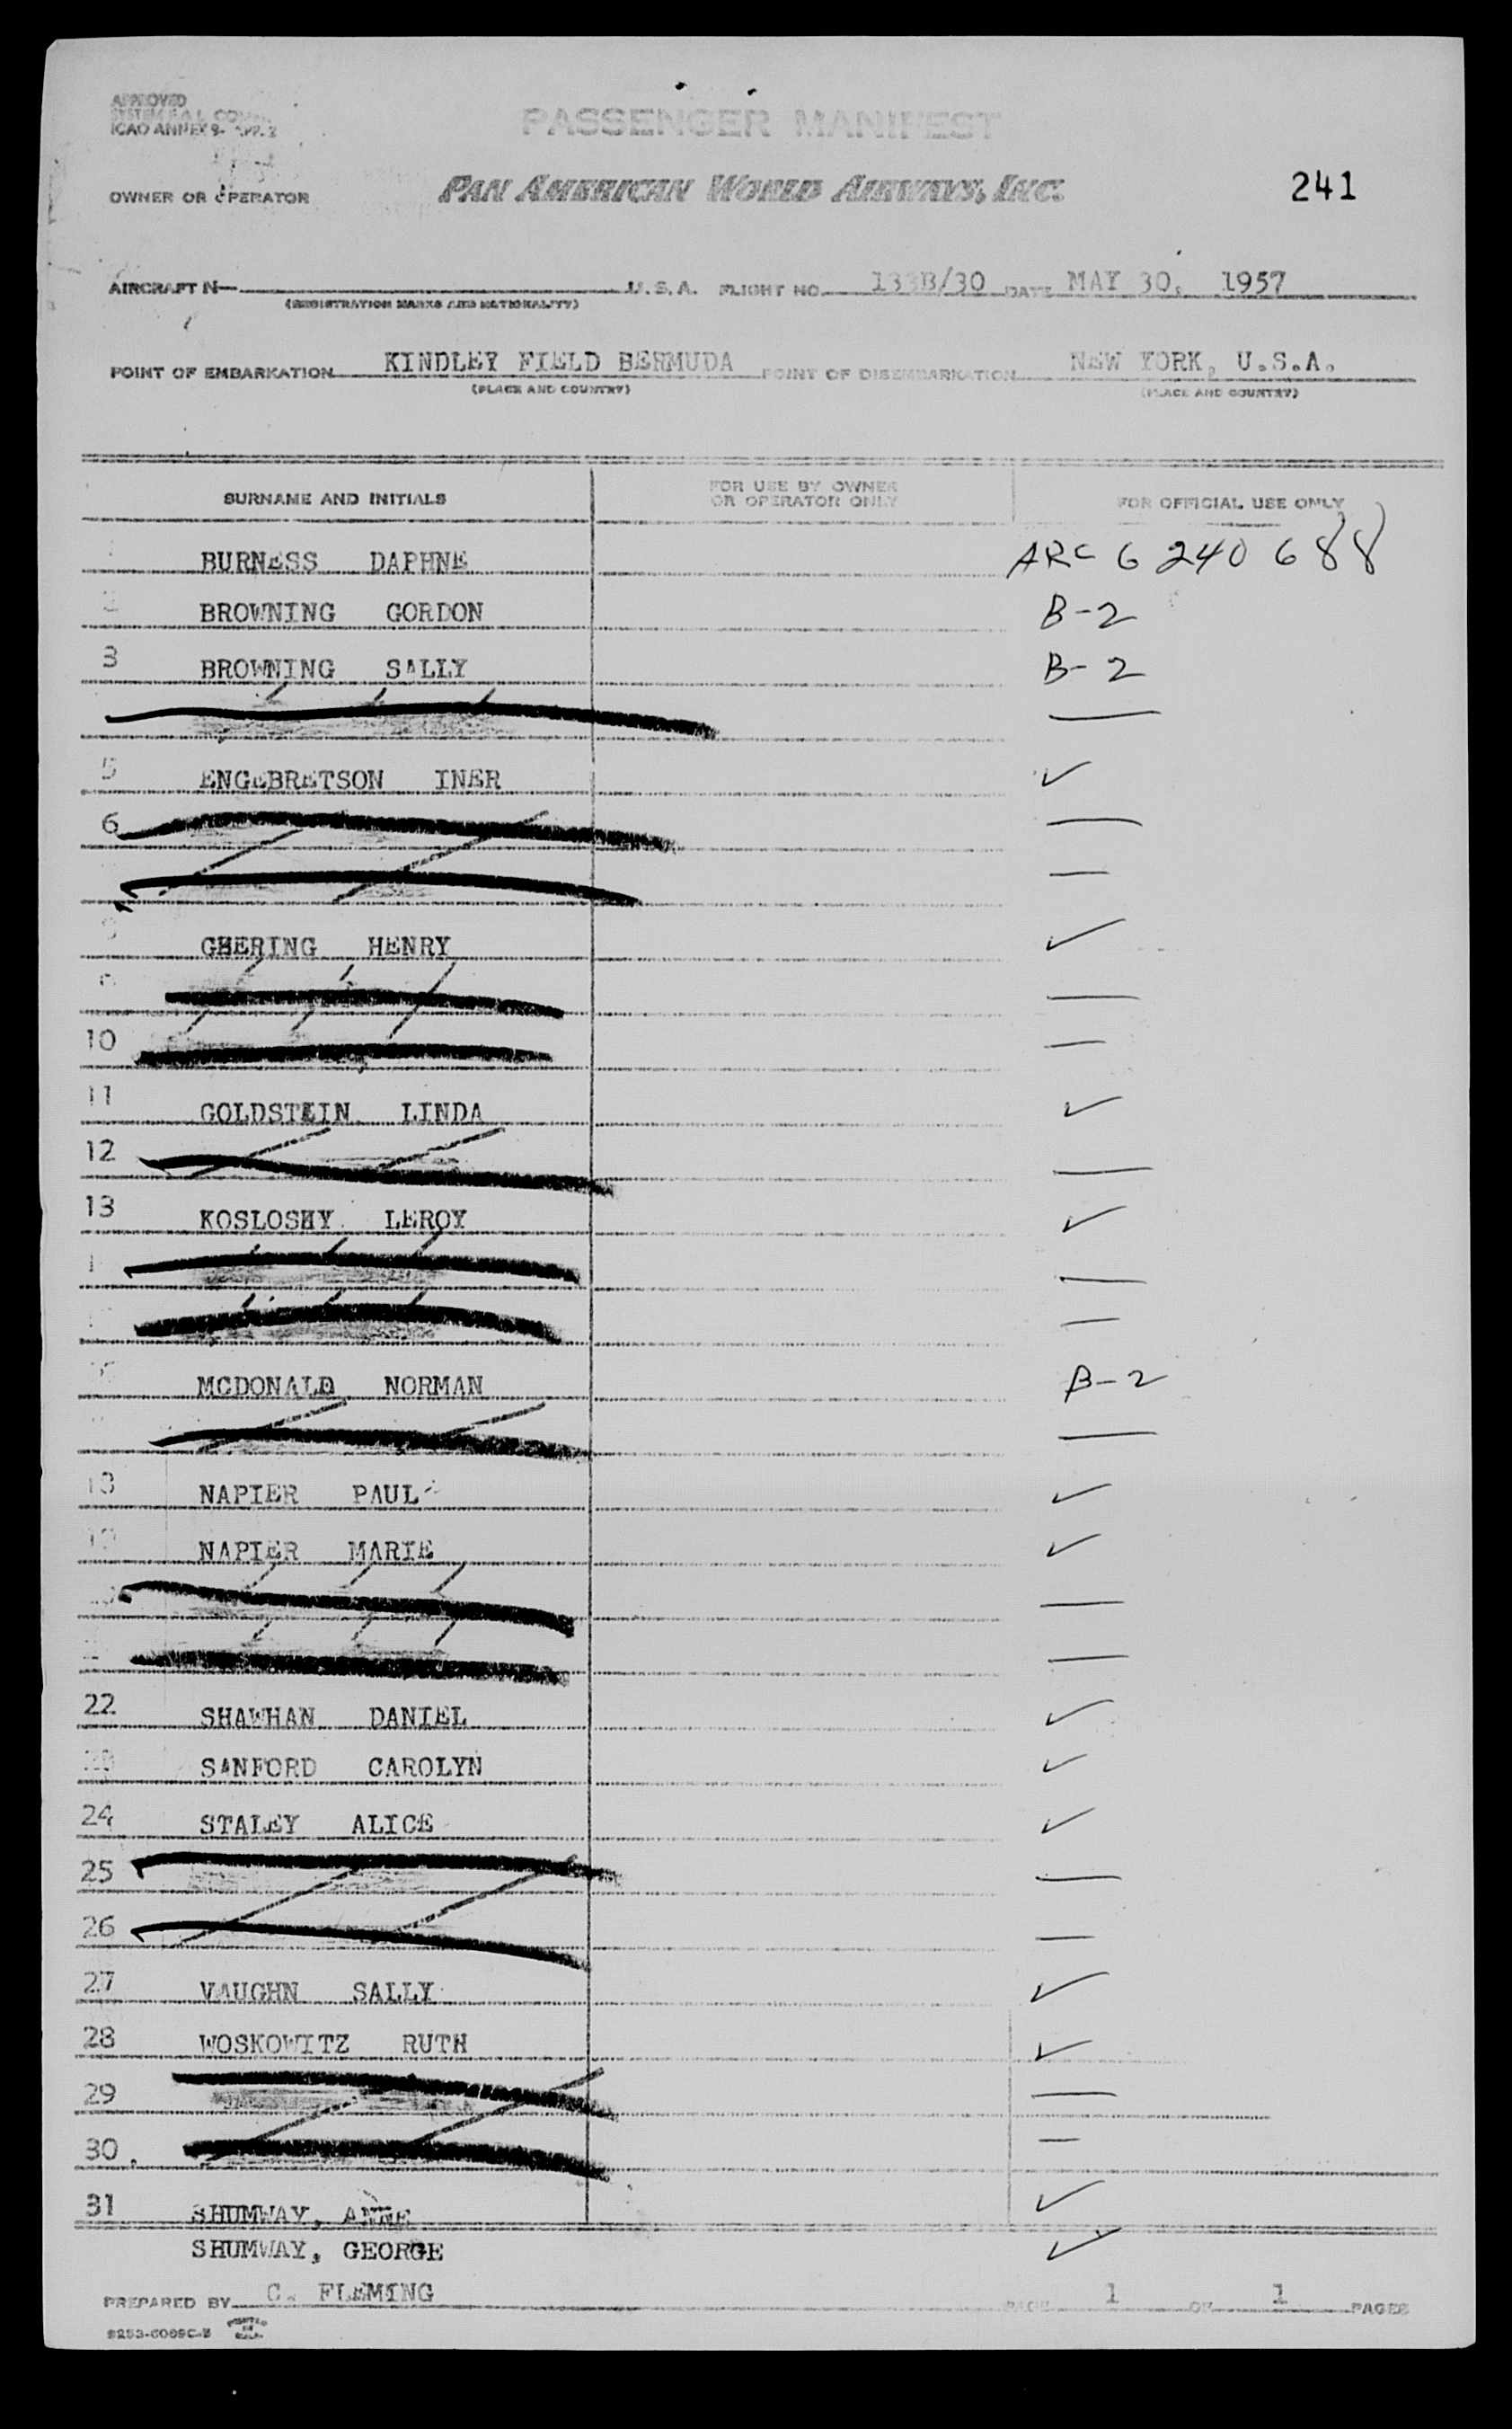 APPROVED
ICAO ANNEX 9-
PASSENGER MANIFEST
OWNER OR OPERATOR PAN AMERICAN WORLD AIRWAYS, INC. 241
AIRCRAFT N— U. S. A. FLIGHT NO. 133B/30 DATE MAY 30, 1957
(REGISTRATION MARKS AND NATIONALITY)
POINT OF EMBARKATION KINDLEY FIELD BERMUDA POINT OF DISEMBARKATION NEW YORK, U.S.A.
(PLACE AND COUNTRY) (PLACE AND COUNTRY)
SURNAME AND INITIALS FOR USE BY OWNER OR OPERATOR ONLY FOR OFFICIAL USE ONLY
BURNESS DAPHNE ARC 6 240 688
BROWNING GORDON B-2
3 BROWNING SALLY B-2
—
5 ENGEBRETSON INER ✓
6 —
—
GEERING HENRY ✓
—
10 —
11 GOLDSTEIN LINDA ✓
12 —
13 KOSLOSKY LEROY ✓
—
—
MCDONALD NORMAN B-2
—
18 NAPIER PAUL ✓
19 NAPIER MARIE ✓
—
—
22 SHAWHAN DANIEL ✓
23 SANFORD CAROLYN ✓
24 STALEY ALICE ✓
25 —
26 —
27 VAUGHN SALLY ✓
28 WOSKOWITZ RUTH ✓
29 —
30 —
31 SHUMWAY, ANNE ✓
SHUMWAY, GEORGE ✓
PREPARED BY C. FLEMING PAGE 1 OF 1 PAGES